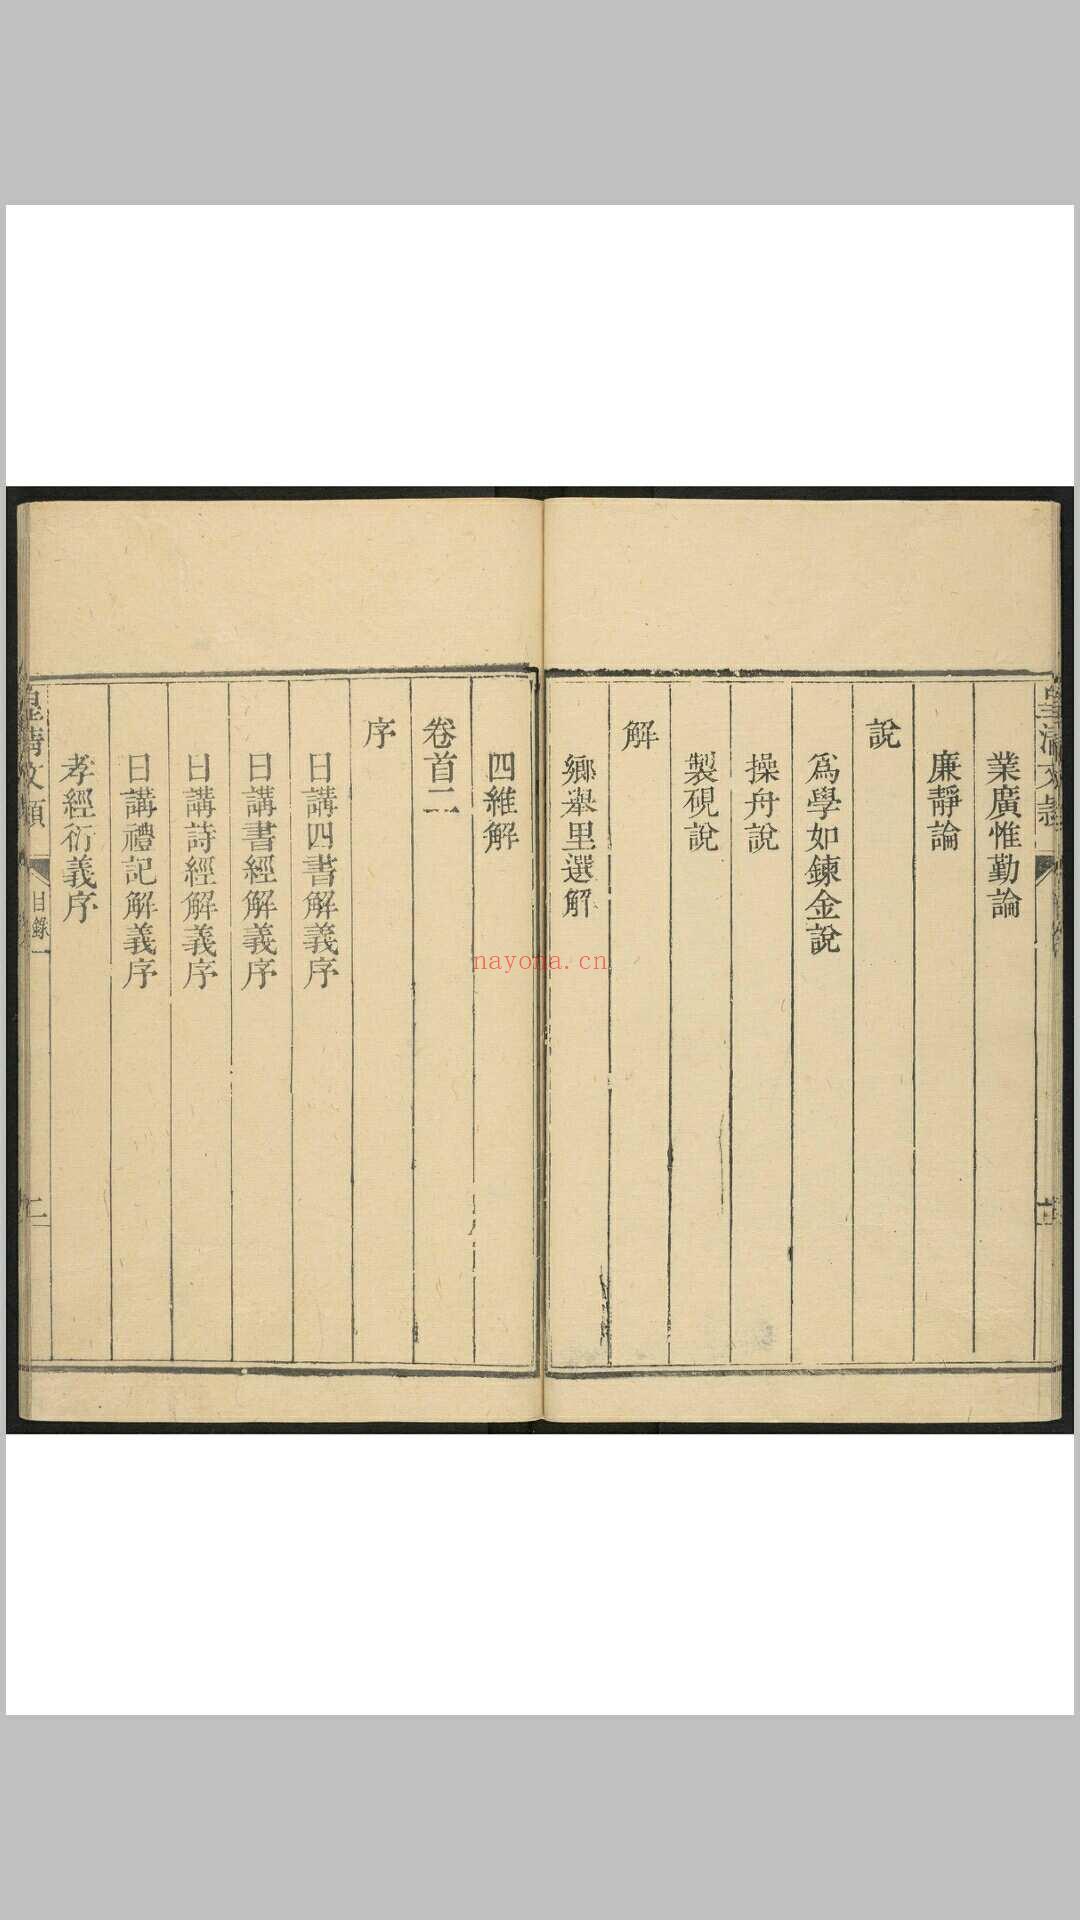 業廣惟勤論
廉靜論
說
為學如鍊金說
操舟說
製硯說
解
鄉舉里選解
四維解
卷首二
序
日講四書解義序
日講書經解義序
日講詩經解義序
日講禮記解義序
孝經衍義序
皇清文類
目錄一
二
nayona.cn